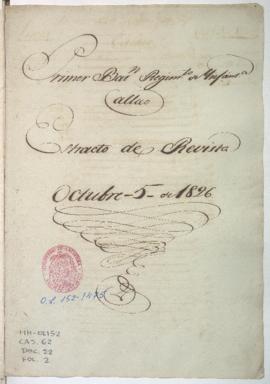 Primer Batn. Regimto. de Infanta.
Callao
Extracto de Revista
Octubre-5-de 1826
O.L. 152-1495
MH-OL152
CAJ. 62
DOC. 22
FOL. 2